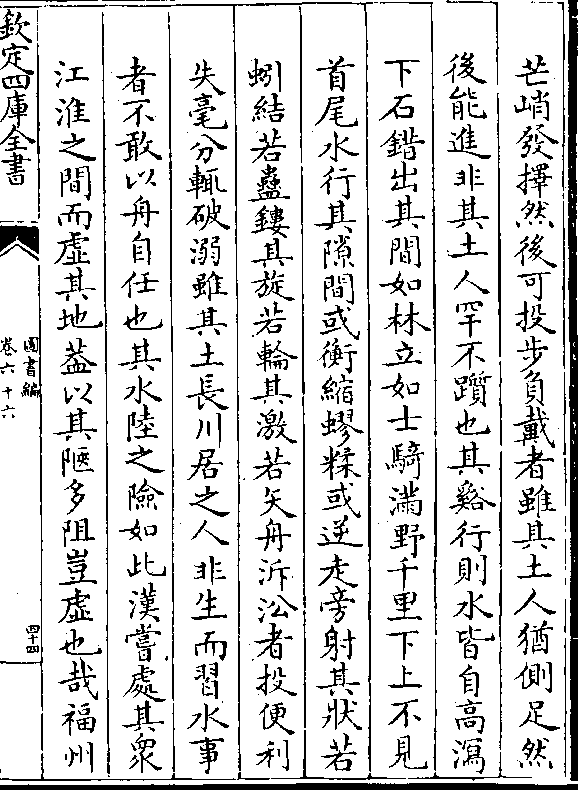 芒峭發擇然後可投步負戴者雖其土人猶側足然
後能進非其土人罕不躓也其谿行則水皆自高瀉
下石錯出其間如林立如士騎滿野千里下上不見
首尾水行其隙間或衡縮蟉糅或逆走旁射其狀若
蚓結若蟲鏤其旋若輪其激若矢舟泝㳂者投便利
失毫分輒破溺雖其土長川居之人非生而習水事
者不敢以舟自任也其水陸之險如此漢嘗處其衆
江淮之間而虚其地葢以其陿多阻豈虚也哉福州
欽定四庫全書
圖書編
卷六十六
四十四